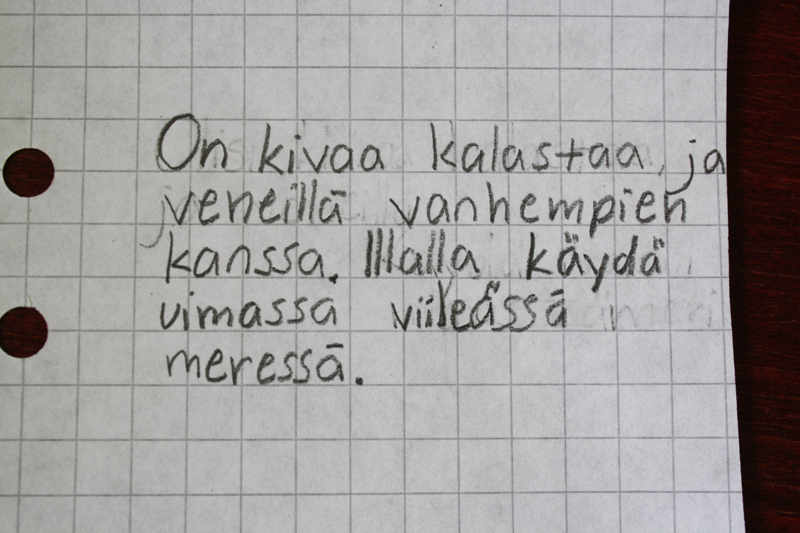 On kivaa kalastaa ja
veneillä vanhempien
kanssa. Illalla käydä
uimassa viileässä
meressä.